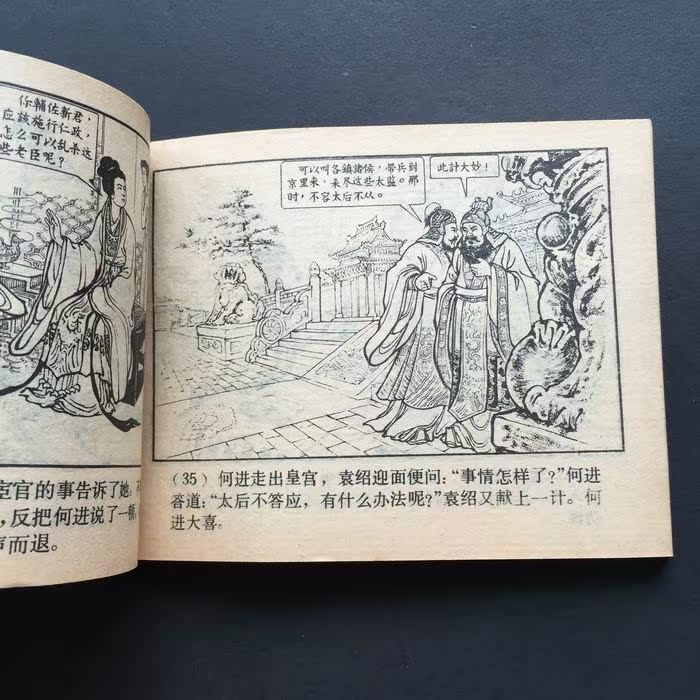 你輔佐新君，
应該施行仁政，
怎么可以乱杀这
些老臣呢？
宦官的事告诉了她。
，反把何进说了一顿，
声而退。
可以叫各鎮諸侯，带兵到
京里来，杀尽这些太监。那
时，不容太后不从。
此計大妙！
（35）何进走出皇宫，袁绍迎面便问：“事情怎样了？”何进
答道：“太后不答应，有什么办法呢？”袁绍又献上一计。何
进大喜。